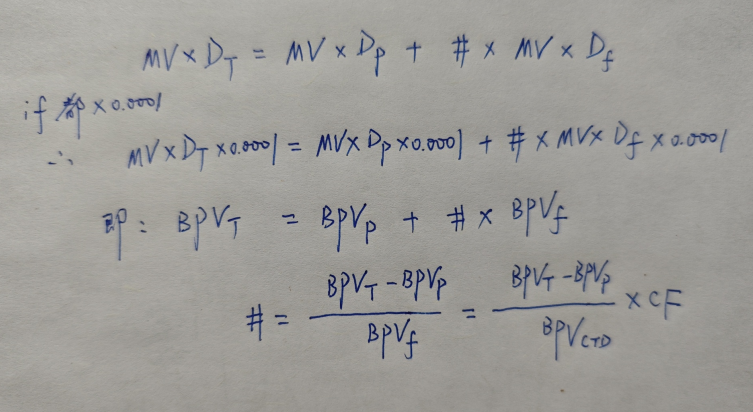 MV×D_T = MV×D_p + #×MV×D_f
if 都×0.0001
∴ MV×D_T×0.0001 = MV×D_p×0.0001 + #×MV×D_f×0.0001
即: BPV_T = BPV_p + #×BPV_f
# = (BPV_T - BPV_p) / BPV_f = (BPV_T - BPV_p) / BPV_CTD × CF